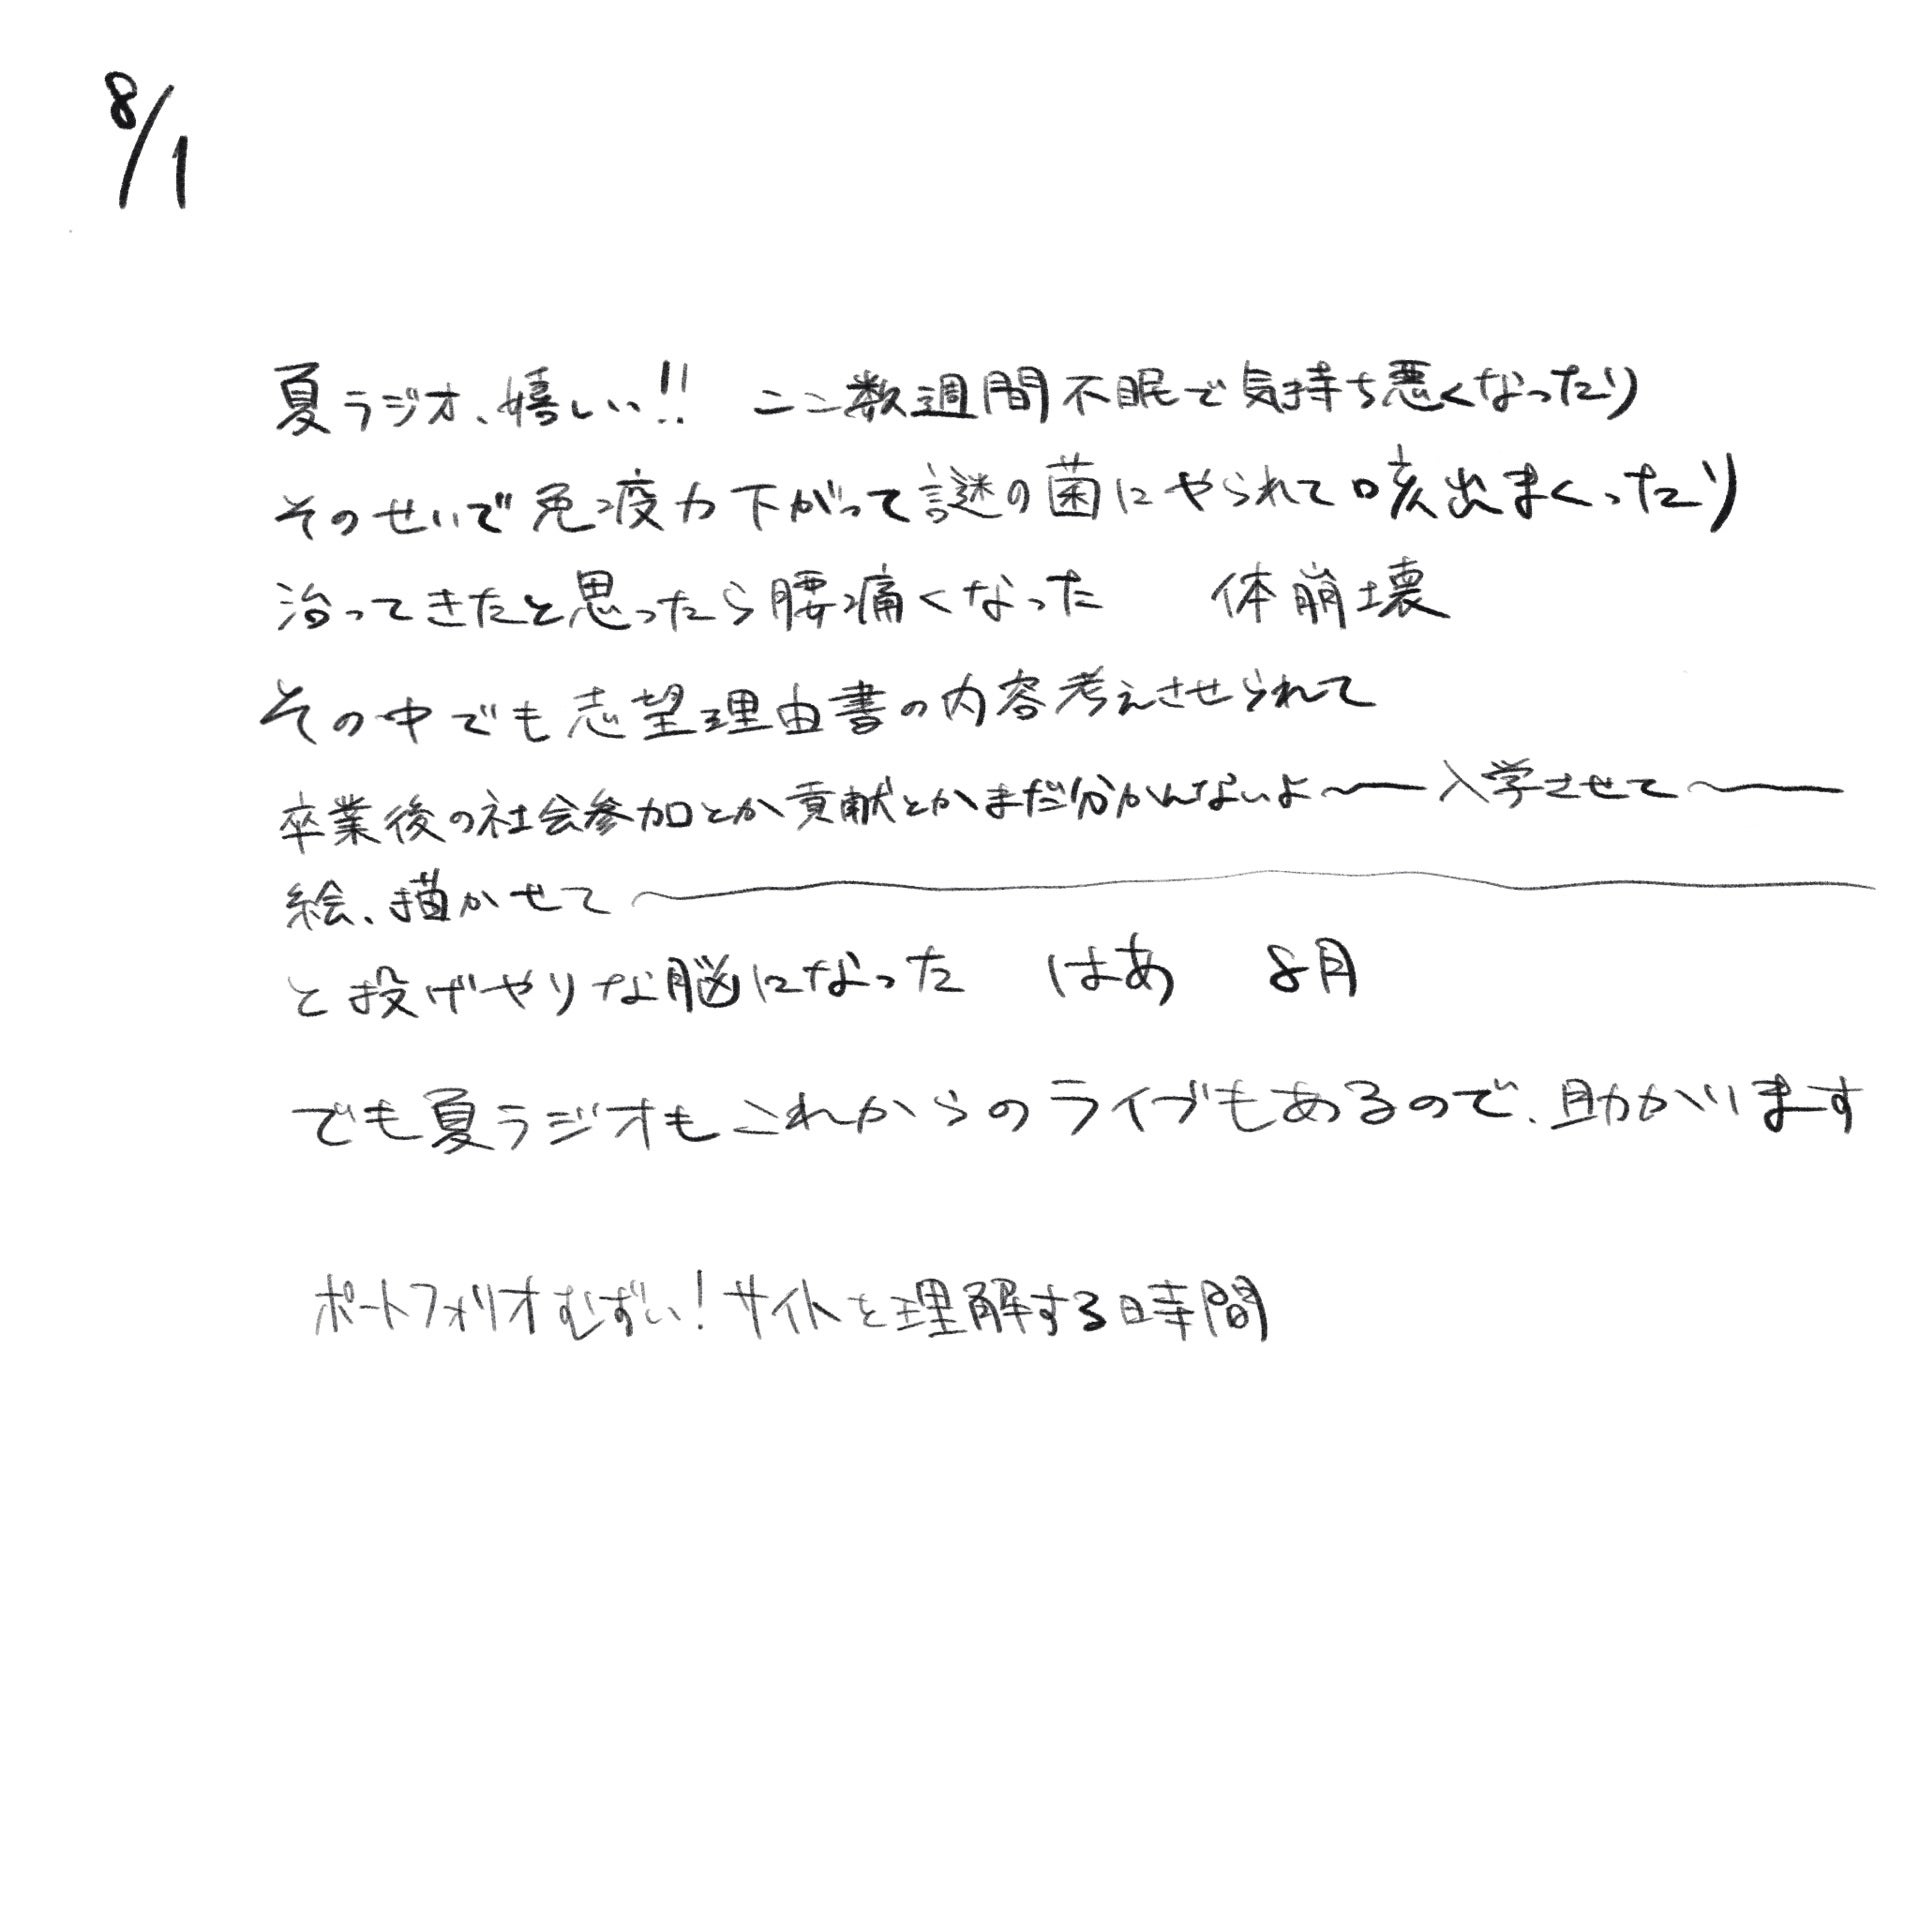 8/1
夏ラジオ、嬉しい!! ここ数週間不眠で気持ち悪くなったり
そのせいで免疫力下がって謎の菌にやられて咳出まくったり
治ってきたと思ったら腰痛くなった 体崩壊
その中でも志望理由書の内容考えさせられて
卒業後の社会参加とか貢献とかまだ分かんないよ〜入学させて〜
絵、描かせて〜
と投げやりな脳になった はあ 8月
でも夏ラジオもこれからのライブもあるので、助かります
ポートフォリオむずい!サイトを理解する時間